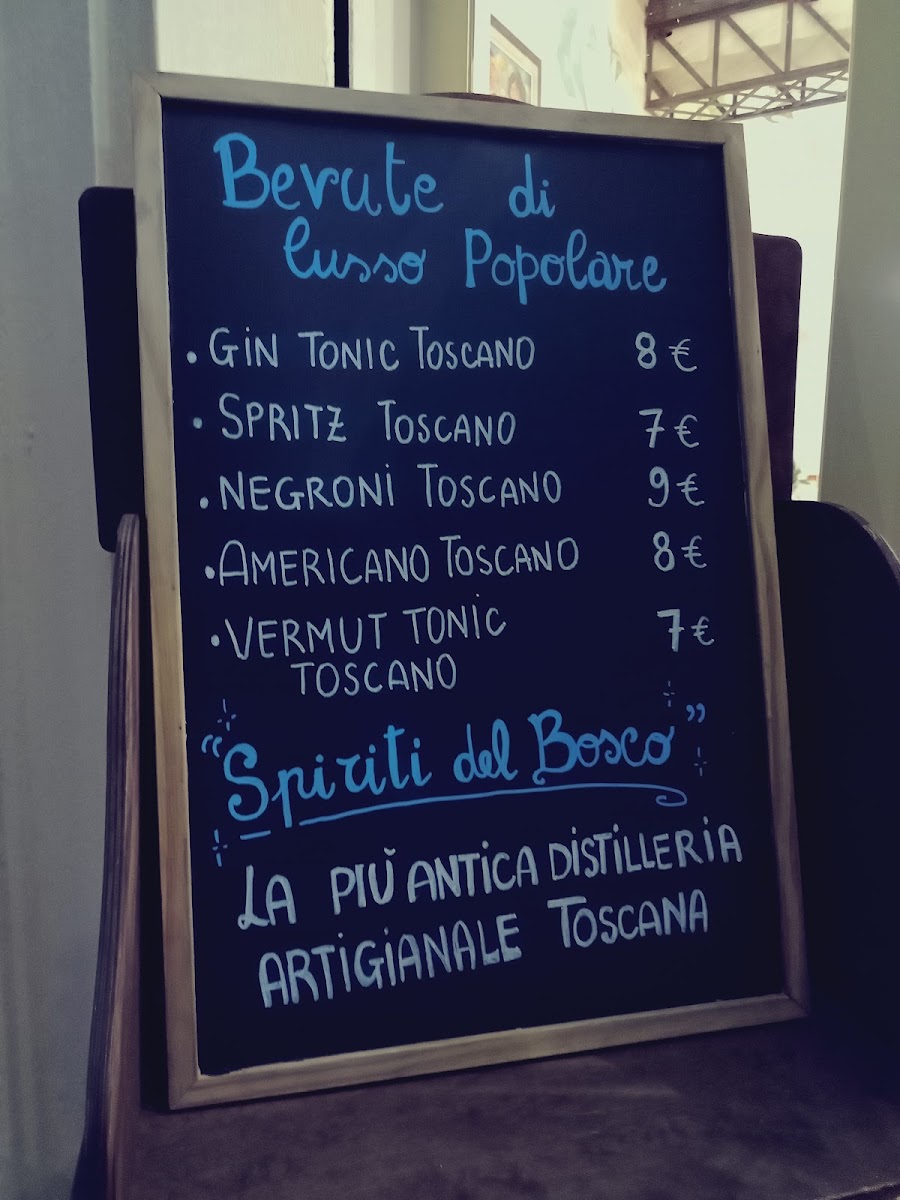 Bevute di
lusso Popolare
• GIN TONIC TOSCANO 8 €
• SPRITZ TOSCANO 7 €
• NEGRONI TOSCANO 9 €
• AMERICANO TOSCANO 8 €
• VERMUT TONIC 7 €
TOSCANO
“Spiriti del Bosco”
LA PIÙ ANTICA DISTILLERIA
ARTIGIANALE TOSCANA